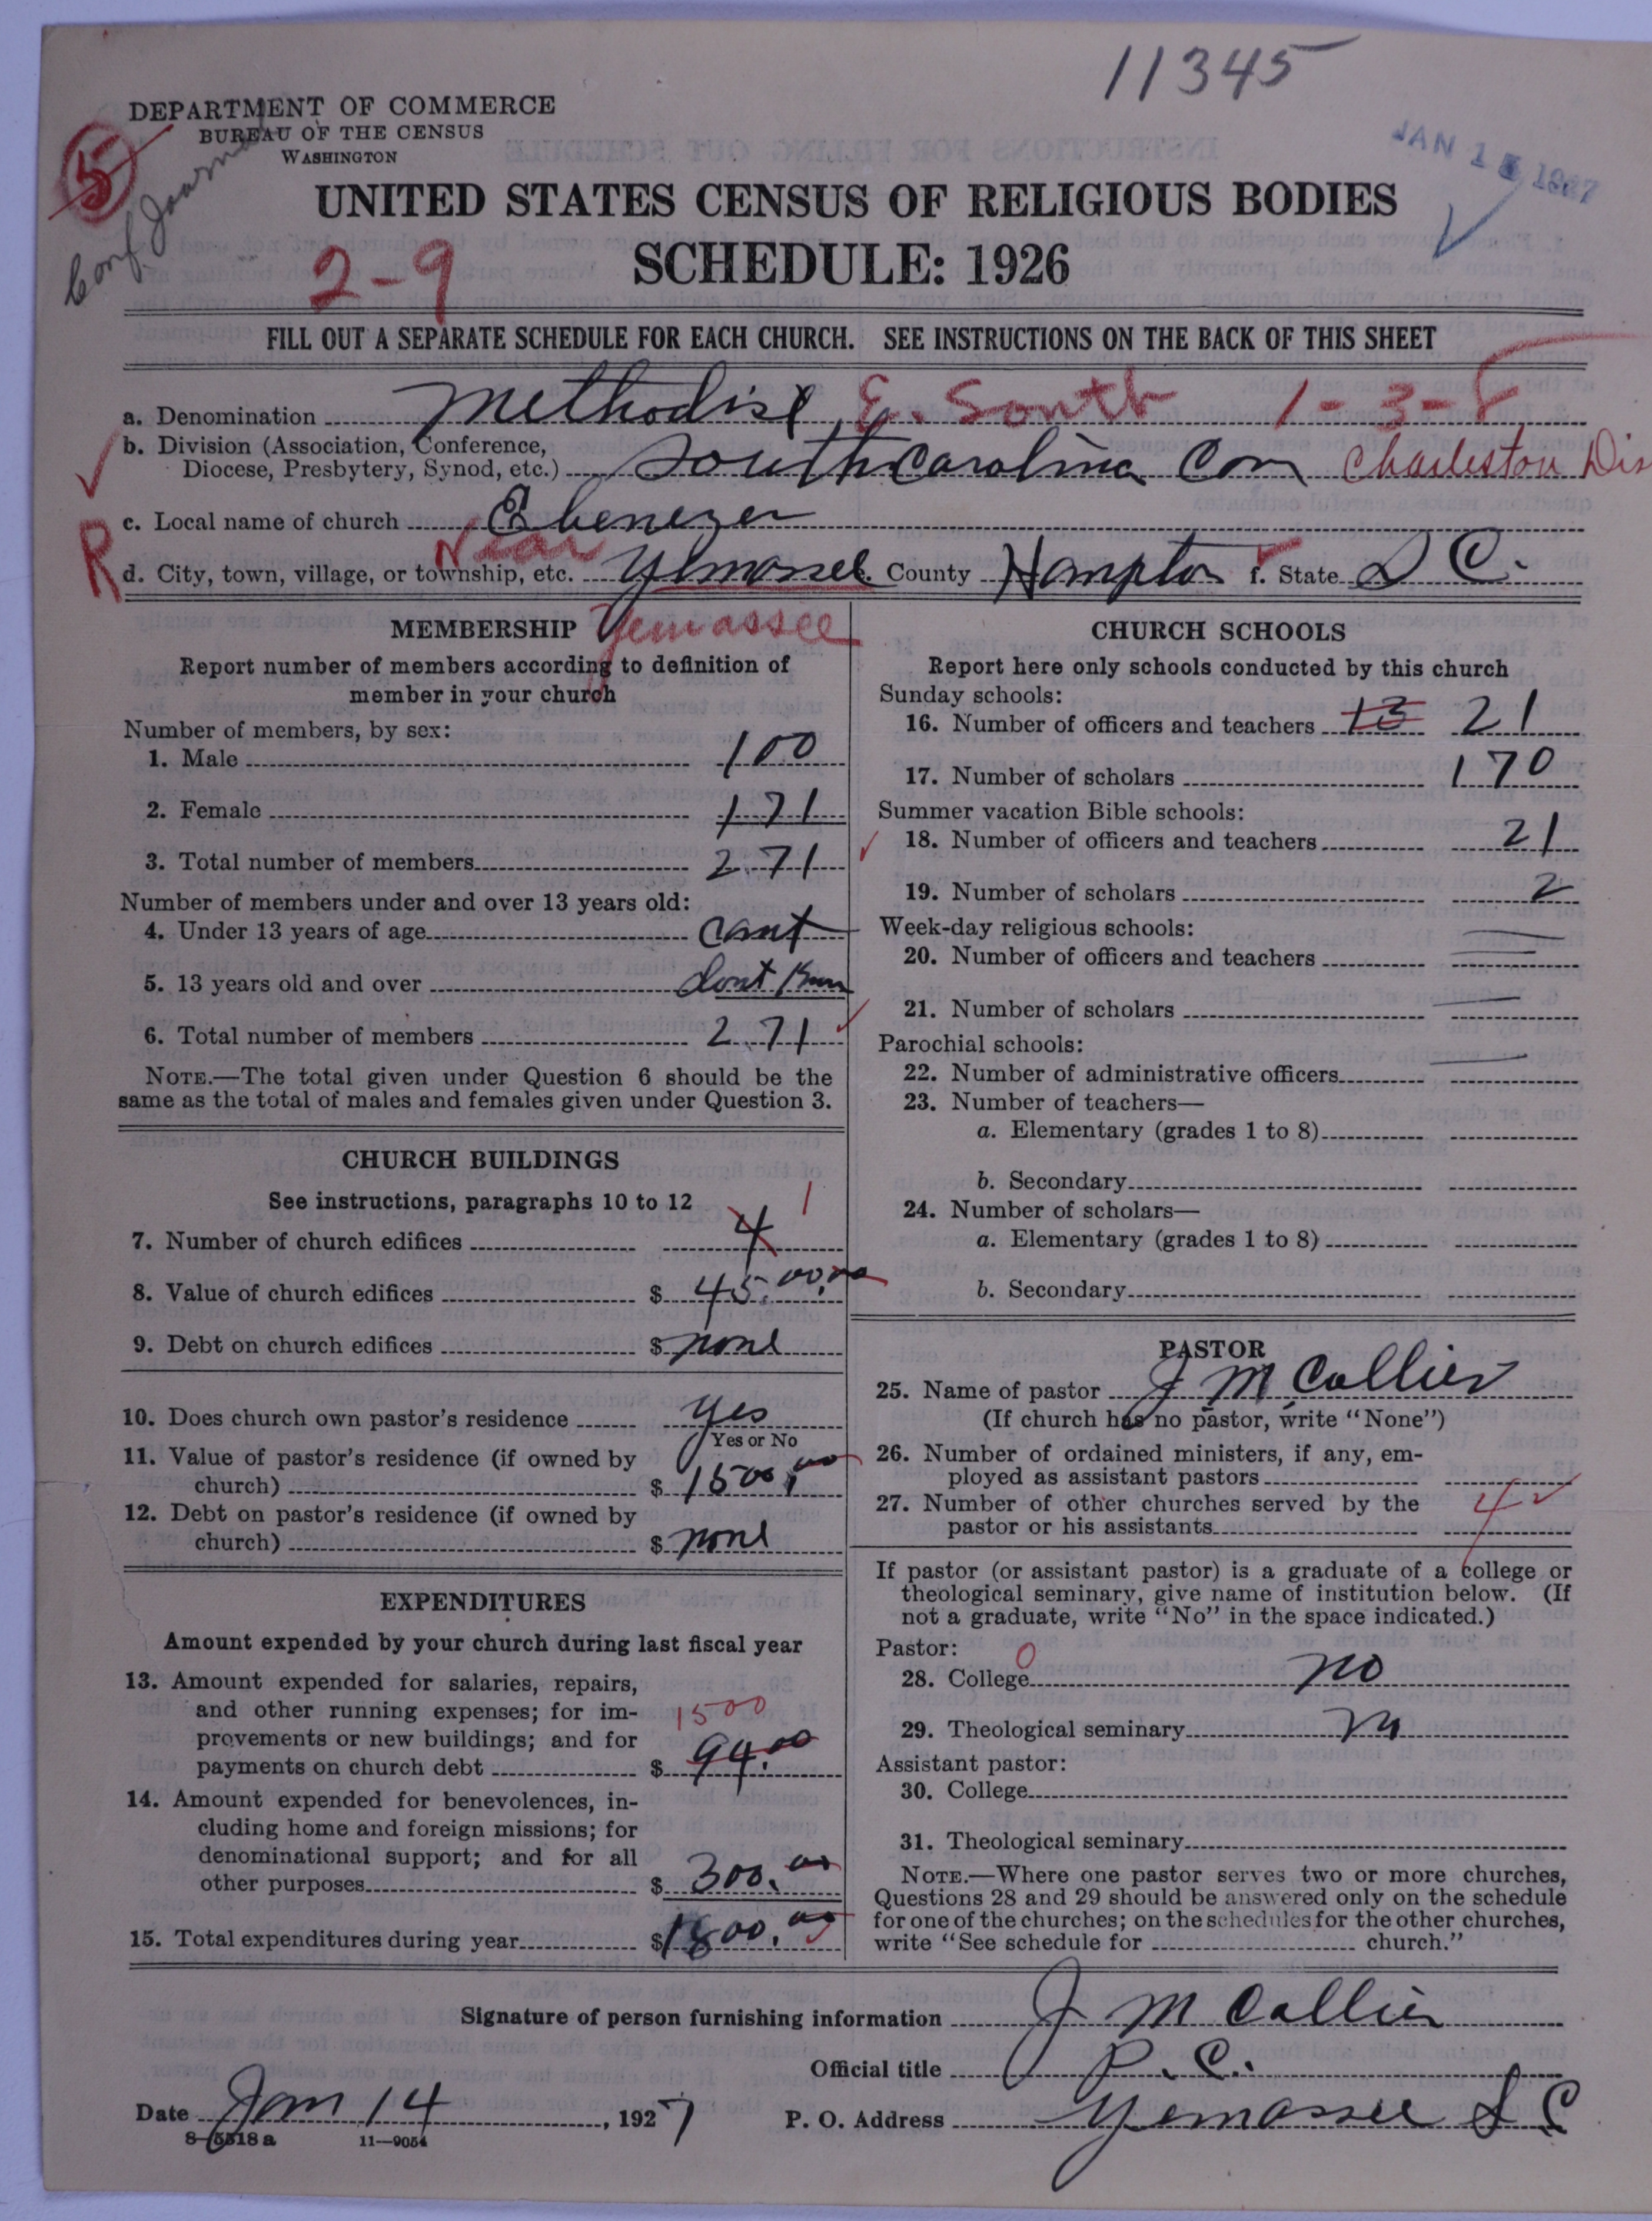 11345
DEPARTMENT OF COMMERCE
BUREAU OF THE CENSUS
WASHINGTON
5
Conf Journal
JAN 1 1927
UNITED STATES CENSUS OF RELIGIOUS BODIES
2-9
SCHEDULE: 1926
FILL OUT A SEPARATE SCHEDULE FOR EACH CHURCH. SEE INSTRUCTIONS ON THE BACK OF THIS SHEET
a. Denomination Methodist E. South 1-3-8
b. Division (Association, Conference,
Diocese, Presbytery, Synod, etc.) South Carolina Con Charleston Dis
c. Local name of church Ebenezer
R
Near
d. City, town, village, or township, etc. Yemassee. County Hampton f. State S C.
Yemassee
MEMBERSHIP
Report number of members according to definition of
member in your church
Number of members, by sex:
1. Male 100
2. Female 171
3. Total number of members 271
Number of members under and over 13 years old:
4. Under 13 years of age cant
5. 13 years old and over dont Know
6. Total number of members 271
NOTE.—The total given under Question 6 should be the
same as the total of males and females given under Question 3.
CHURCH BUILDINGS
See instructions, paragraphs 10 to 12
1
7. Number of church edifices 4
8. Value of church edifices $ 45.00.00
9. Debt on church edifices $ none
10. Does church own pastor's residence yes
Yes or No
11. Value of pastor's residence (if owned by
church) $ 1500.00
12. Debt on pastor's residence (if owned by
church) $ none
EXPENDITURES
Amount expended by your church during last fiscal year
13. Amount expended for salaries, repairs,
and other running expenses; for im-
1500
provements or new buildings; and for
payments on church debt $ 94.00
14. Amount expended for benevolences, in-
cluding home and foreign missions; for
denominational support; and for all
other purposes $ 300.00
15. Total expenditures during year $ 1800.00
CHURCH SCHOOLS
Report here only schools conducted by this church
Sunday schools:
16. Number of officers and teachers 13 21
17. Number of scholars 170
Summer vacation Bible schools:
18. Number of officers and teachers 21
19. Number of scholars 2
Week-day religious schools:
20. Number of officers and teachers
21. Number of scholars
Parochial schools:
22. Number of administrative officers
23. Number of teachers—
a. Elementary (grades 1 to 8)
b. Secondary
24. Number of scholars—
a. Elementary (grades 1 to 8)
b. Secondary
PASTOR
25. Name of pastor J M Collier
(If church has no pastor, write "None")
26. Number of ordained ministers, if any, em-
ployed as assistant pastors
27. Number of other churches served by the
pastor or his assistants 4
If pastor (or assistant pastor) is a graduate of a college or
theological seminary, give name of institution below. (If
not a graduate, write "No" in the space indicated.)
Pastor:
0
28. College no
29. Theological seminary no
Assistant pastor:
30. College
31. Theological seminary
NOTE.—Where one pastor serves two or more churches,
Questions 28 and 29 should be answered only on the schedule
for one of the churches; on the schedules for the other churches,
write "See schedule for church."
Signature of person furnishing information J M Collier
Official title P. C.
Date Jan 14, 1927 P. O. Address Yemassee S C
8-5518 a 11-9054